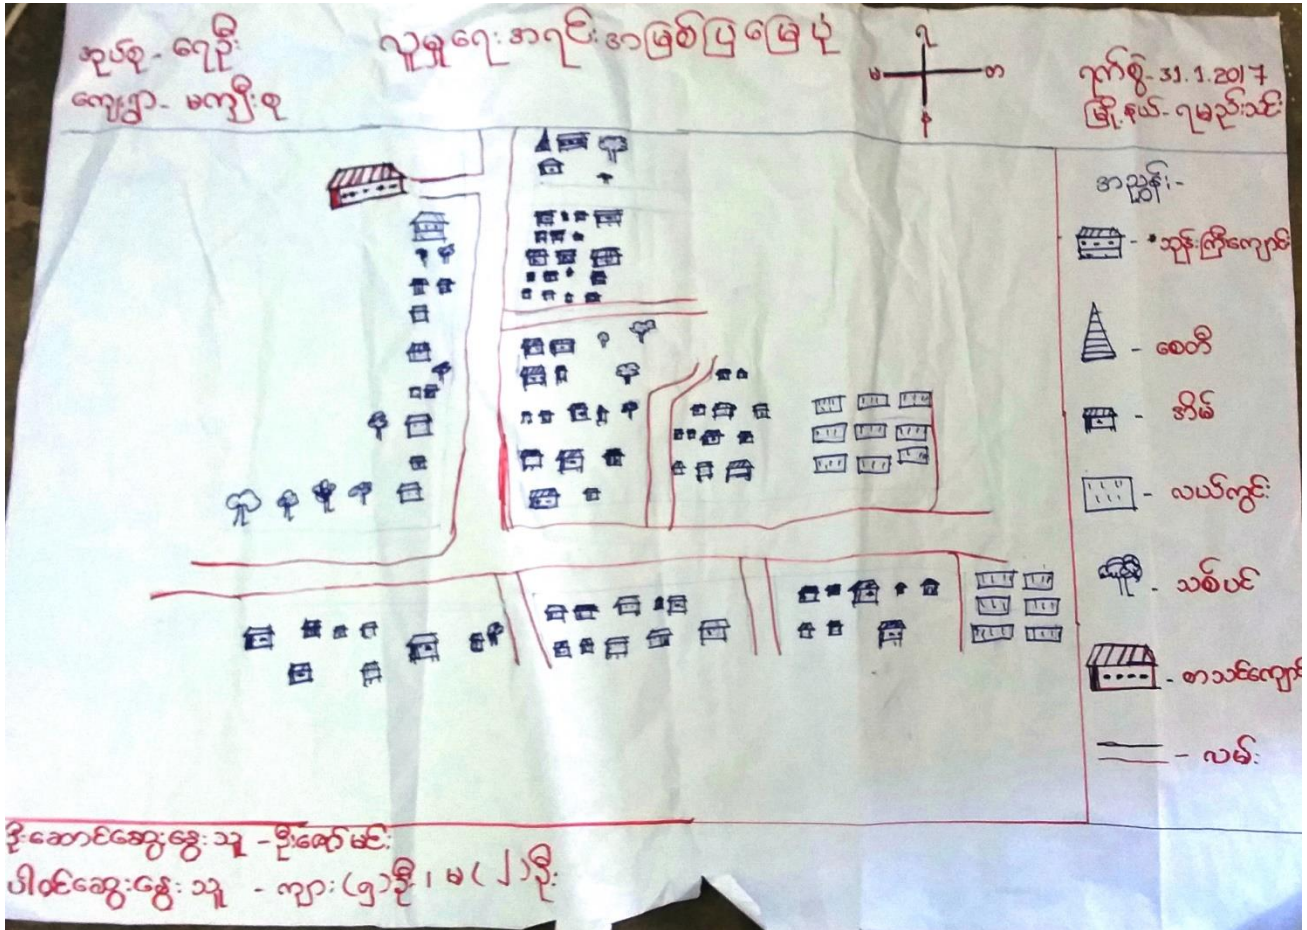 အုပ်စု - ရေဦး
ကျေးရွာ - မကျီးစု
လူမှုရေးအရင်းအမြစ်ပြမြေပုံ
မ
တ
ရက်စွဲ - 31.1.2017
မြို့နယ် - ရမည်းသင်း
အညွှန်း -
- ဘုန်းကြီးကျောင်း
- စေတီ
- အိမ်
- လယ်ကွင်း
- သစ်ပင်
- စာသင်ကျောင်း
- လမ်း
ဦးဆောင်ဆွေးနွေးသူ - ဦးဇော်မင်း
ပါဝင်ဆွေးနွေးသူ - ကျား (၅) ဦး၊ မ (၂) ဦး